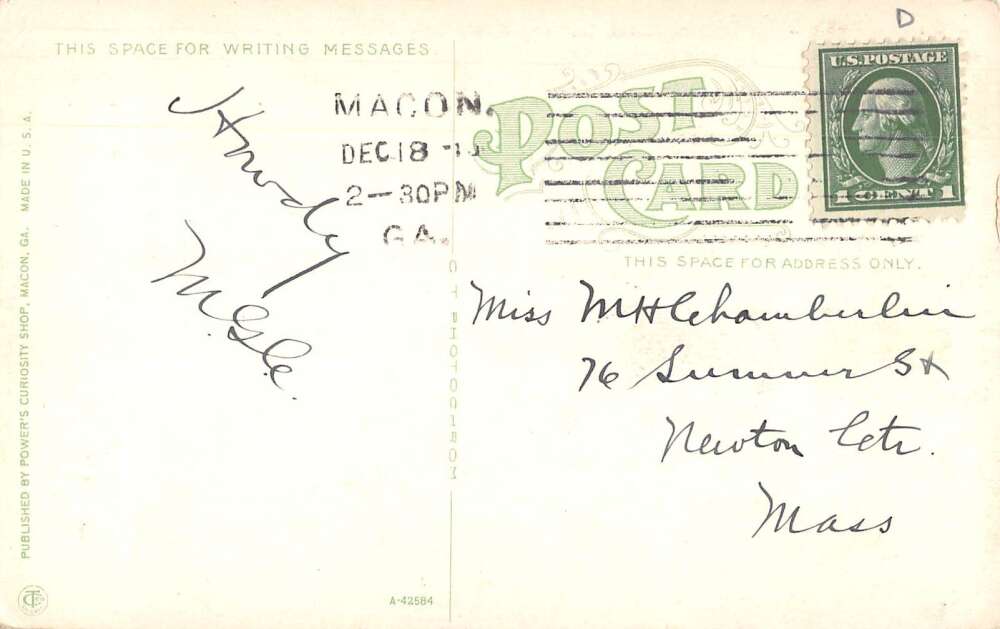 D
THIS SPACE FOR WRITING MESSAGES
Howdy
MACON,
DEC 18
2-30PM
GA.
POST CARD
U.S.POSTAGE
1 CENT 1
THIS SPACE FOR ADDRESS ONLY.
Miss M H Chamberlin
76 Summer St
Newton Ctr.
Mass
C T PHOTOCHROM
PUBLISHED BY POWER'S CURIOSITY SHOP, MACON, GA. MADE IN U. S. A.
A-42584